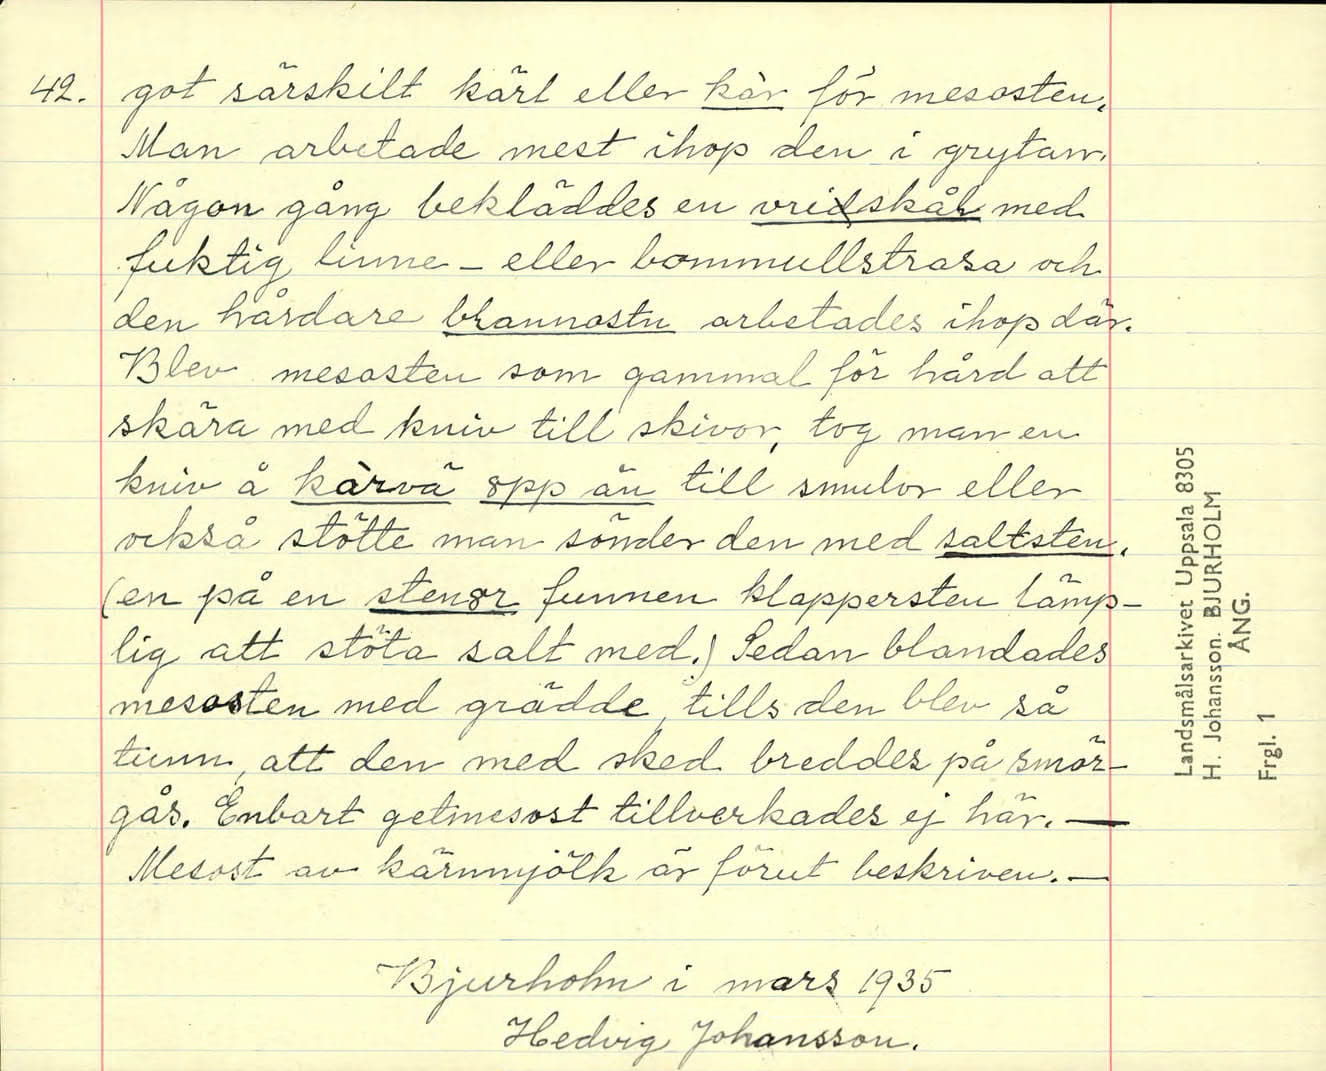 42. got särskilt kärl eller kàr för mesosten.
Man arbetade mest ihop den i grytan.
Någon gång bekläddes en vridskåḷ med
fuktig linne- eller bommullstrasa och
den hårdare brannostn arbetades ihop där.
Blev mesosten som gammal för hård att
skära med kniv till skivor, tog man en
kniv å kàrvä opp än till smulor eller
också stötte man sönder den med saltsten.
(en på en stenor funnen klappersten lämp-
lig att stöta salt med.) Sedan blandades
mesosten med grädde, tills den blev så
tunn, att den med sked breddes på smör-
gås. Enbart getmesost tillverkades ej här. —
Mesost av kärnmjölk är förut beskriven. —
Bjurholm i mars 1935
Hedvig Johansson.
Landsmålsarkivet Uppsala 8305
H. Johansson. BJURHOLM
ÅNG.
Frgl. 1